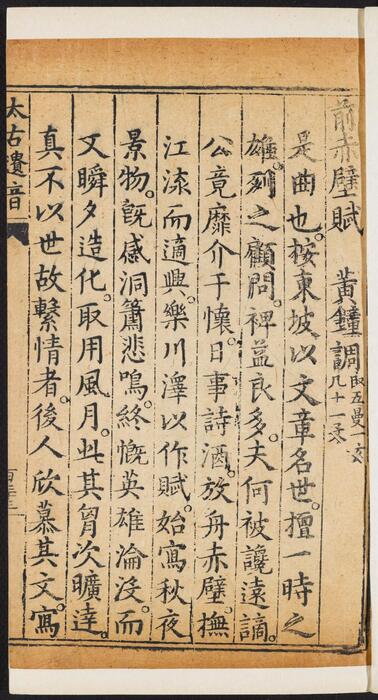 前赤壁賦 黃鐘調 即五曼一 凡十一
是曲也。按東坡以文章名世。擅一時之
雄。列之顧問。裨益良多。夫何被讒遠謫。
公竟靡介于懷。日事詩酒。放舟赤壁。撫
江流而適興。樂川澤以作賦。始寫秋夜
景物。既感洞簫悲鳴。終慨英雄淪沒。而
又瞬夕造化。取用風月。此其胷次曠達。
真不以世故繫情者。後人欣慕其文。寫
太古遺音